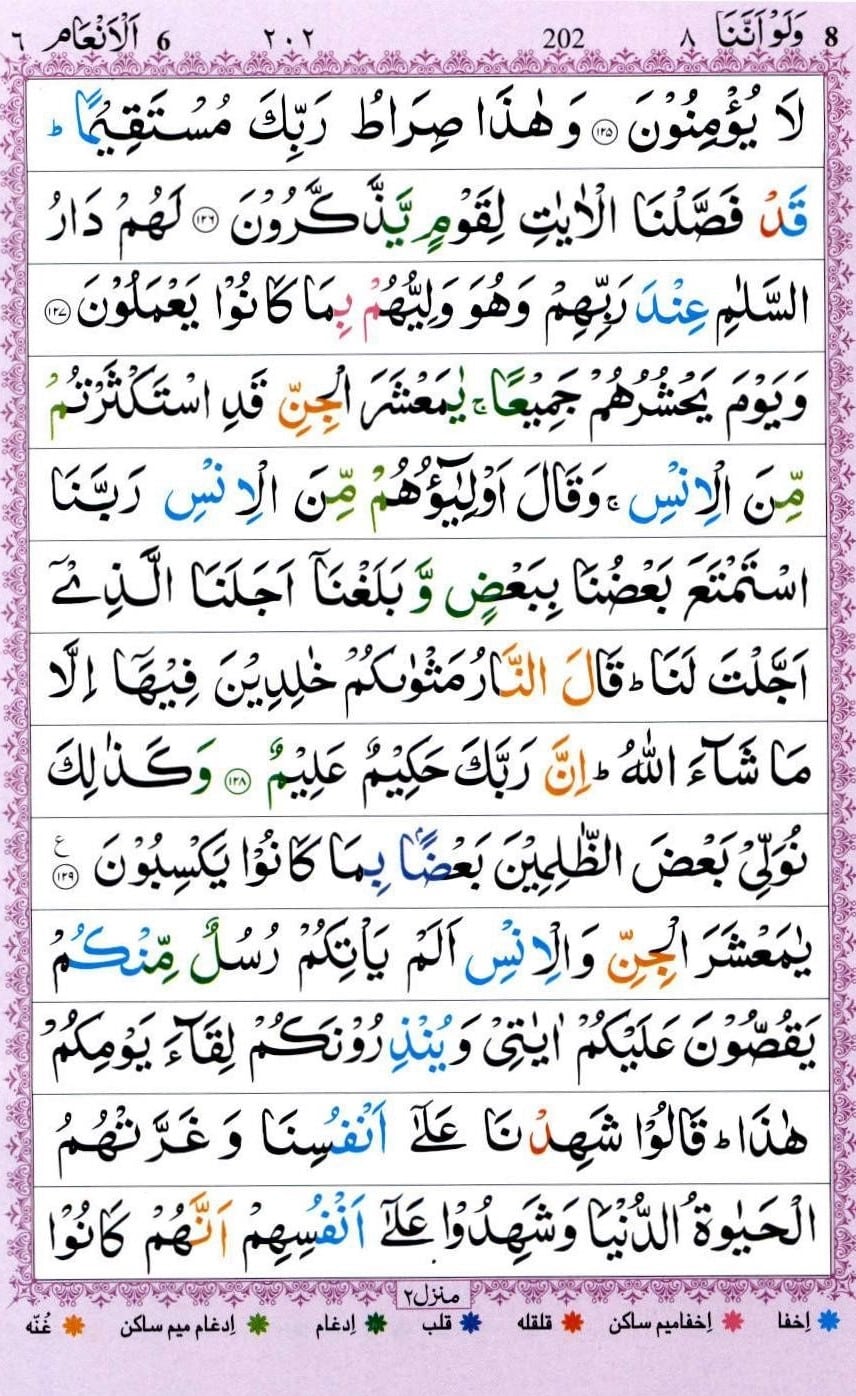 8 وَلَوْ اَنَّنَا ٨ 202 ٢٠٢ 6 اَلْاَنْعَام ٦
لَا يُؤْمِنُوْنَ ﴿۱۲۵﴾ وَ هٰذَا صِرَاطُ رَبِّكَ مُسْتَقِيْمًا ؕ
قَدْ فَصَّلْنَا الْاٰيٰتِ لِقَوْمٍ يَّذَّكَّرُوْنَ ﴿۱۲۶﴾ لَهُمْ دَارُ
السَّلٰمِ عِنْدَ رَبِّهِمْ وَهُوَ وَلِيُّهُمْ بِمَا كَانُوْا يَعْمَلُوْنَ ﴿۱۲۷﴾
وَيَوْمَ يَحْشُرُهُمْ جَمِيْعًا ۚ يٰمَعْشَرَ الْجِنِّ قَدِ اسْتَكْثَرْتُمْ
مِّنَ الْاِنْسِ ۚ وَقَالَ اَوْلِيٰٓؤُهُمْ مِّنَ الْاِنْسِ رَبَّنَا
اسْتَمْتَعَ بَعْضُنَا بِبَعْضٍ وَّ بَلَغْنَاۤ اَجَلَنَا الَّذِیْۤ
اَجَّلْتَ لَنَا ؕ قَالَ النَّارُ مَثْوٰىكُمْ خٰلِدِيْنَ فِيْهَاۤ اِلَّا
مَا شَآءَ اللّٰهُ ؕ اِنَّ رَبَّكَ حَكِيْمٌ عَلِيْمٌ ﴿۱۲۸﴾ وَ كَذٰلِكَ
نُوَلِّیْ بَعْضَ الظّٰلِمِيْنَ بَعْضًۢا بِمَا كَانُوْا يَكْسِبُوْنَ ﴿۱۲۹﴾ ع
يٰمَعْشَرَ الْجِنِّ وَالْاِنْسِ اَلَمْ يَاْتِكُمْ رُسُلٌ مِّنْكُمْ
يَقُصُّوْنَ عَلَيْكُمْ اٰيٰتِیْ وَ يُنْذِرُوْنَكُمْ لِقَآءَ يَوْمِكُمْ
هٰذَا ؕ قَالُوْا شَهِدْنَا عَلٰۤی اَنْفُسِنَا وَ غَرَّتْهُمُ
الْحَيٰوةُ الدُّنْيَا وَشَهِدُوْا عَلٰۤی اَنْفُسِهِمْ اَنَّهُمْ كَانُوْا
منزل٢
اِخفا اِخفامیم ساکن قلقله قلب اِدغام اِدغام میم ساکن غُنّه